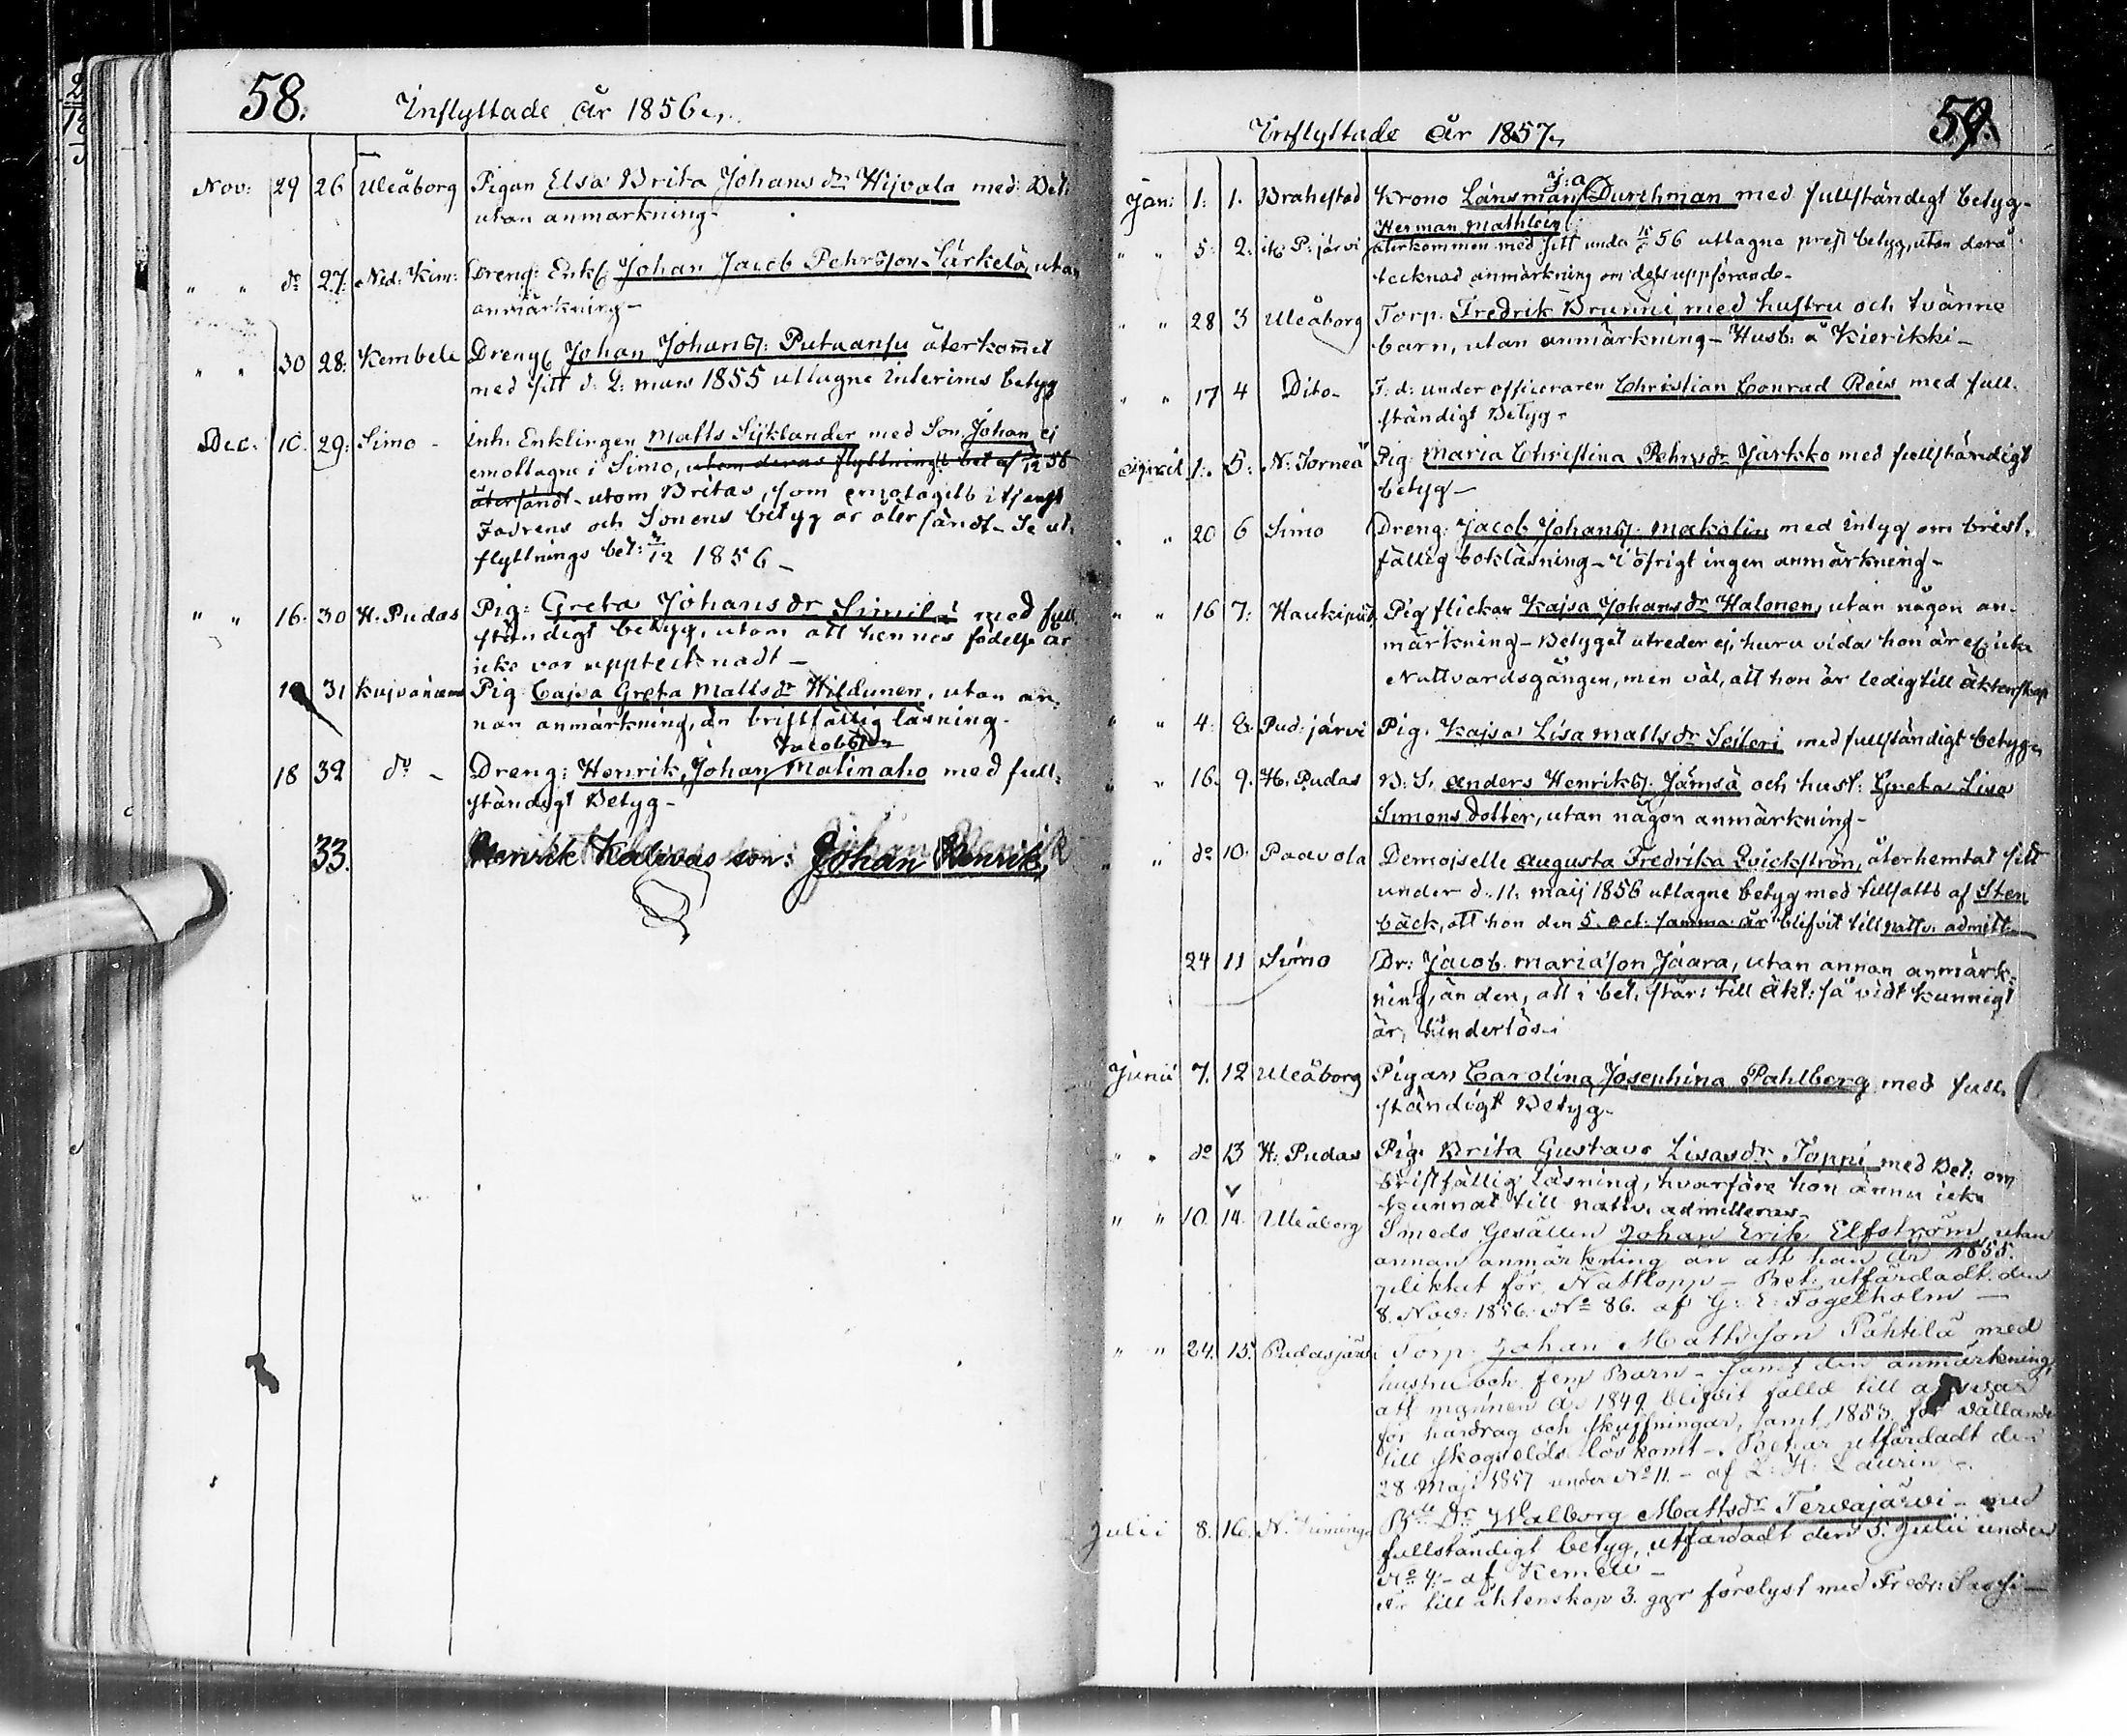 58.
Inflyttade år 1856.
Nov: 29 26 Uleåborg Pigan Elsa Brita Johans dr Hijvala med Bet:
utan anmärkning-
" " do 27: Ned: Kim: Dreng: Enkl: Johan Jacob Pehrsson Särkelä, utan
anmärkning-
" " 30 28: Kembele Dreng: Johan Johans: Putuansu återkommet
med sitt d: 2: mars 1855 uttagne interims betyg
Dec: 10. 29: Simo - Inh: Enklingen Matts Sijklander med Son Johan ej
emottagne i Simo, utom deras flyttnings bet af 12 56
återsändt - utom Britas, som emotagits i tjenst
Fadrens och Sonens betyg är återsändt - Se ut-
flyttnings bet: 12 1856 -
" " 16. 30 H. Pudas Pig: Greta Johans dr Similä med full-
ständigt betyg, utom att hennes födelse år
icke var upptecknadt -
31 Kuivaniemi Pig Cajsa Greta Mattsdr Hildunen, utan an-
nan anmärkning, än bristfällig läsning-
Jacobsson
18 32 do - Dreng: Henrik Johan Matinaho med full-
ständigt Betyg -
33. Henrik Kalevas son: Johan Henrik
Inflyttade år 1857.
59.
J: a
Jan: 1: 1. Brahestad Krono Länsman Durchman med fullständigt betyg-
Herman Mathlein
" " 5: 2: P: järvi återkommen med sitt under 56 uttagne prest betyg, utan derå
tecknad anmärkning om dess uppförande-
" " 28 3 Uleåborg Torp. Fredrik Brunni med hustru och tvänne
barn, utan anmärkning - Husb: å Kierikki -
" " 17 4 Dito - F: d: under officeraren Christian Conrad Reis med full-
ständigt Betyg -
April 1: 5: N: Torneå Pig Maria Christina Pehrsdr Jarkko med fullständigt
betyg -
" " 20 6 Simo Dreng: Jacob Johans: Makolin med intyg om brist-
fällig bokläsning - i öfrigt ingen anmärkning -
" " 16 7: Haukipud. Pigflickan Kajsa Johans dr Halonen, utan någon an-
märkning - Betyget utreder ej, huru vida hon är
Nattvardsgången, men väl, att hon är ledig till äktenskap
" " 4: 8. Pud: järvi Pig. Kajsa Lisa Mattsdr Seiteri med fullständigt betyg
" " 16. 9. H. Pudas B: S. Anders Henriks: Jämsä och hust: Greta Lisa
Simons dotter, utan någon anmärkning -
" " do 10. Paavola Demoiselle Augusta Fredrika Qvickström, återhemtat sitt
under d. 11: maij 1856 uttagne betyg med tillsatts af Sten
bäck, att hon den 5. oct: samma år blifvit till nattv: admitt-
24 11 Simo Dr: Jacob Mariason Jaara, utan annan anmärk-
ning, än den, att i bet. står: till äkt: så vidt kunnigt
är, hinderlös.
Junii 7. 12 Uleåborg Pigan Carolina Josephina Pahlberg med full-
ständigt Betyg-
" " do 13 H: Pudas Pig. Brita Gustava Lisasdr Toppi med Bet: om
bristfällig läsning, hvarföre hon ännu icke
kunnat till nattv. admitteras-
" " 10. 14. Uleåborg Smeds Gesällen Johan Erik Elfström, utan
annan anmärkning än att han år 1855.
pliktat för Nattlopp - Bet: utfärdadt den
8. Nov: 1856. No 86. af G: E: Fogelholm -
" " 24. 15. Pudasjärvi Torp. Johan Mathsson Pähtilä med
hustru och fem Barn - samt den anmärkning,
att mannen År 1849 blifvit fälld till ansvar
för hardrag och skuffningar, samt 1853 för vållande
till skogselds löskomst - Bet: är utfärdadt den
28 Maji 1857 under No 11. - af L: H: Laurin -
Julii 8. 16. N: Kiminge Bde Dr Walborg Mattsdr Tervajärvi - med
fullständigt betyg, utfärdadt den 5. Julii under
No 4: - af Kemell -
Är till äktenskap 3. ggr förelyst med Fredr: Sassi -